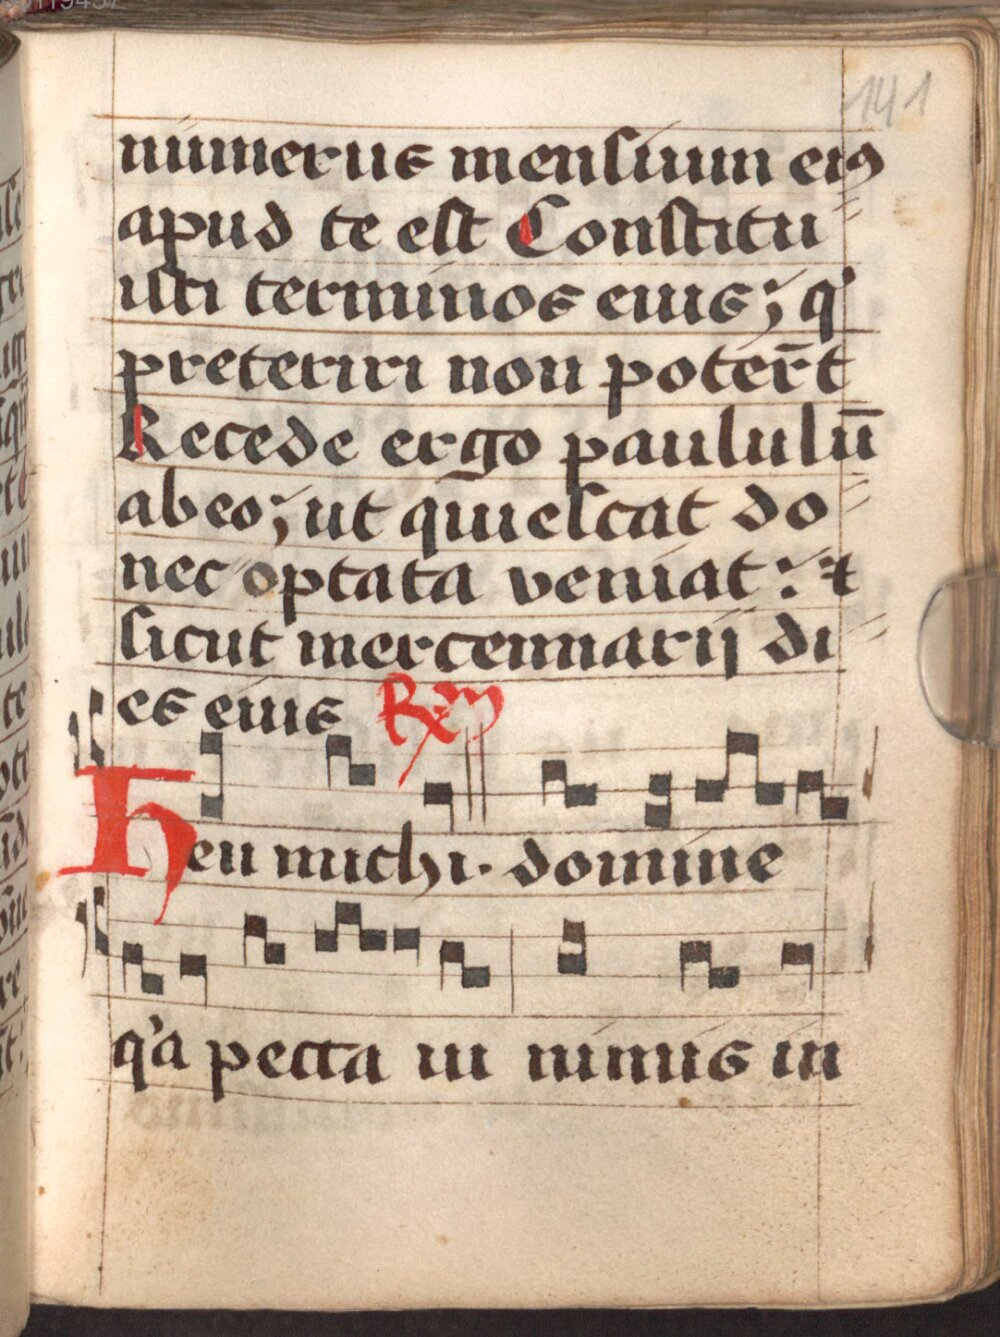 141
numerus mensium eiꝰ
apud te est Constitu
isti terminos eius; q'
preteriri non poter̄t
Recede ergo paululū
ab eo; ut quiescat do
nec optata veniat: ⁊
sicut mercennarij di
es eius Rm
Heu michi. domine
q'a peccaui nimis in